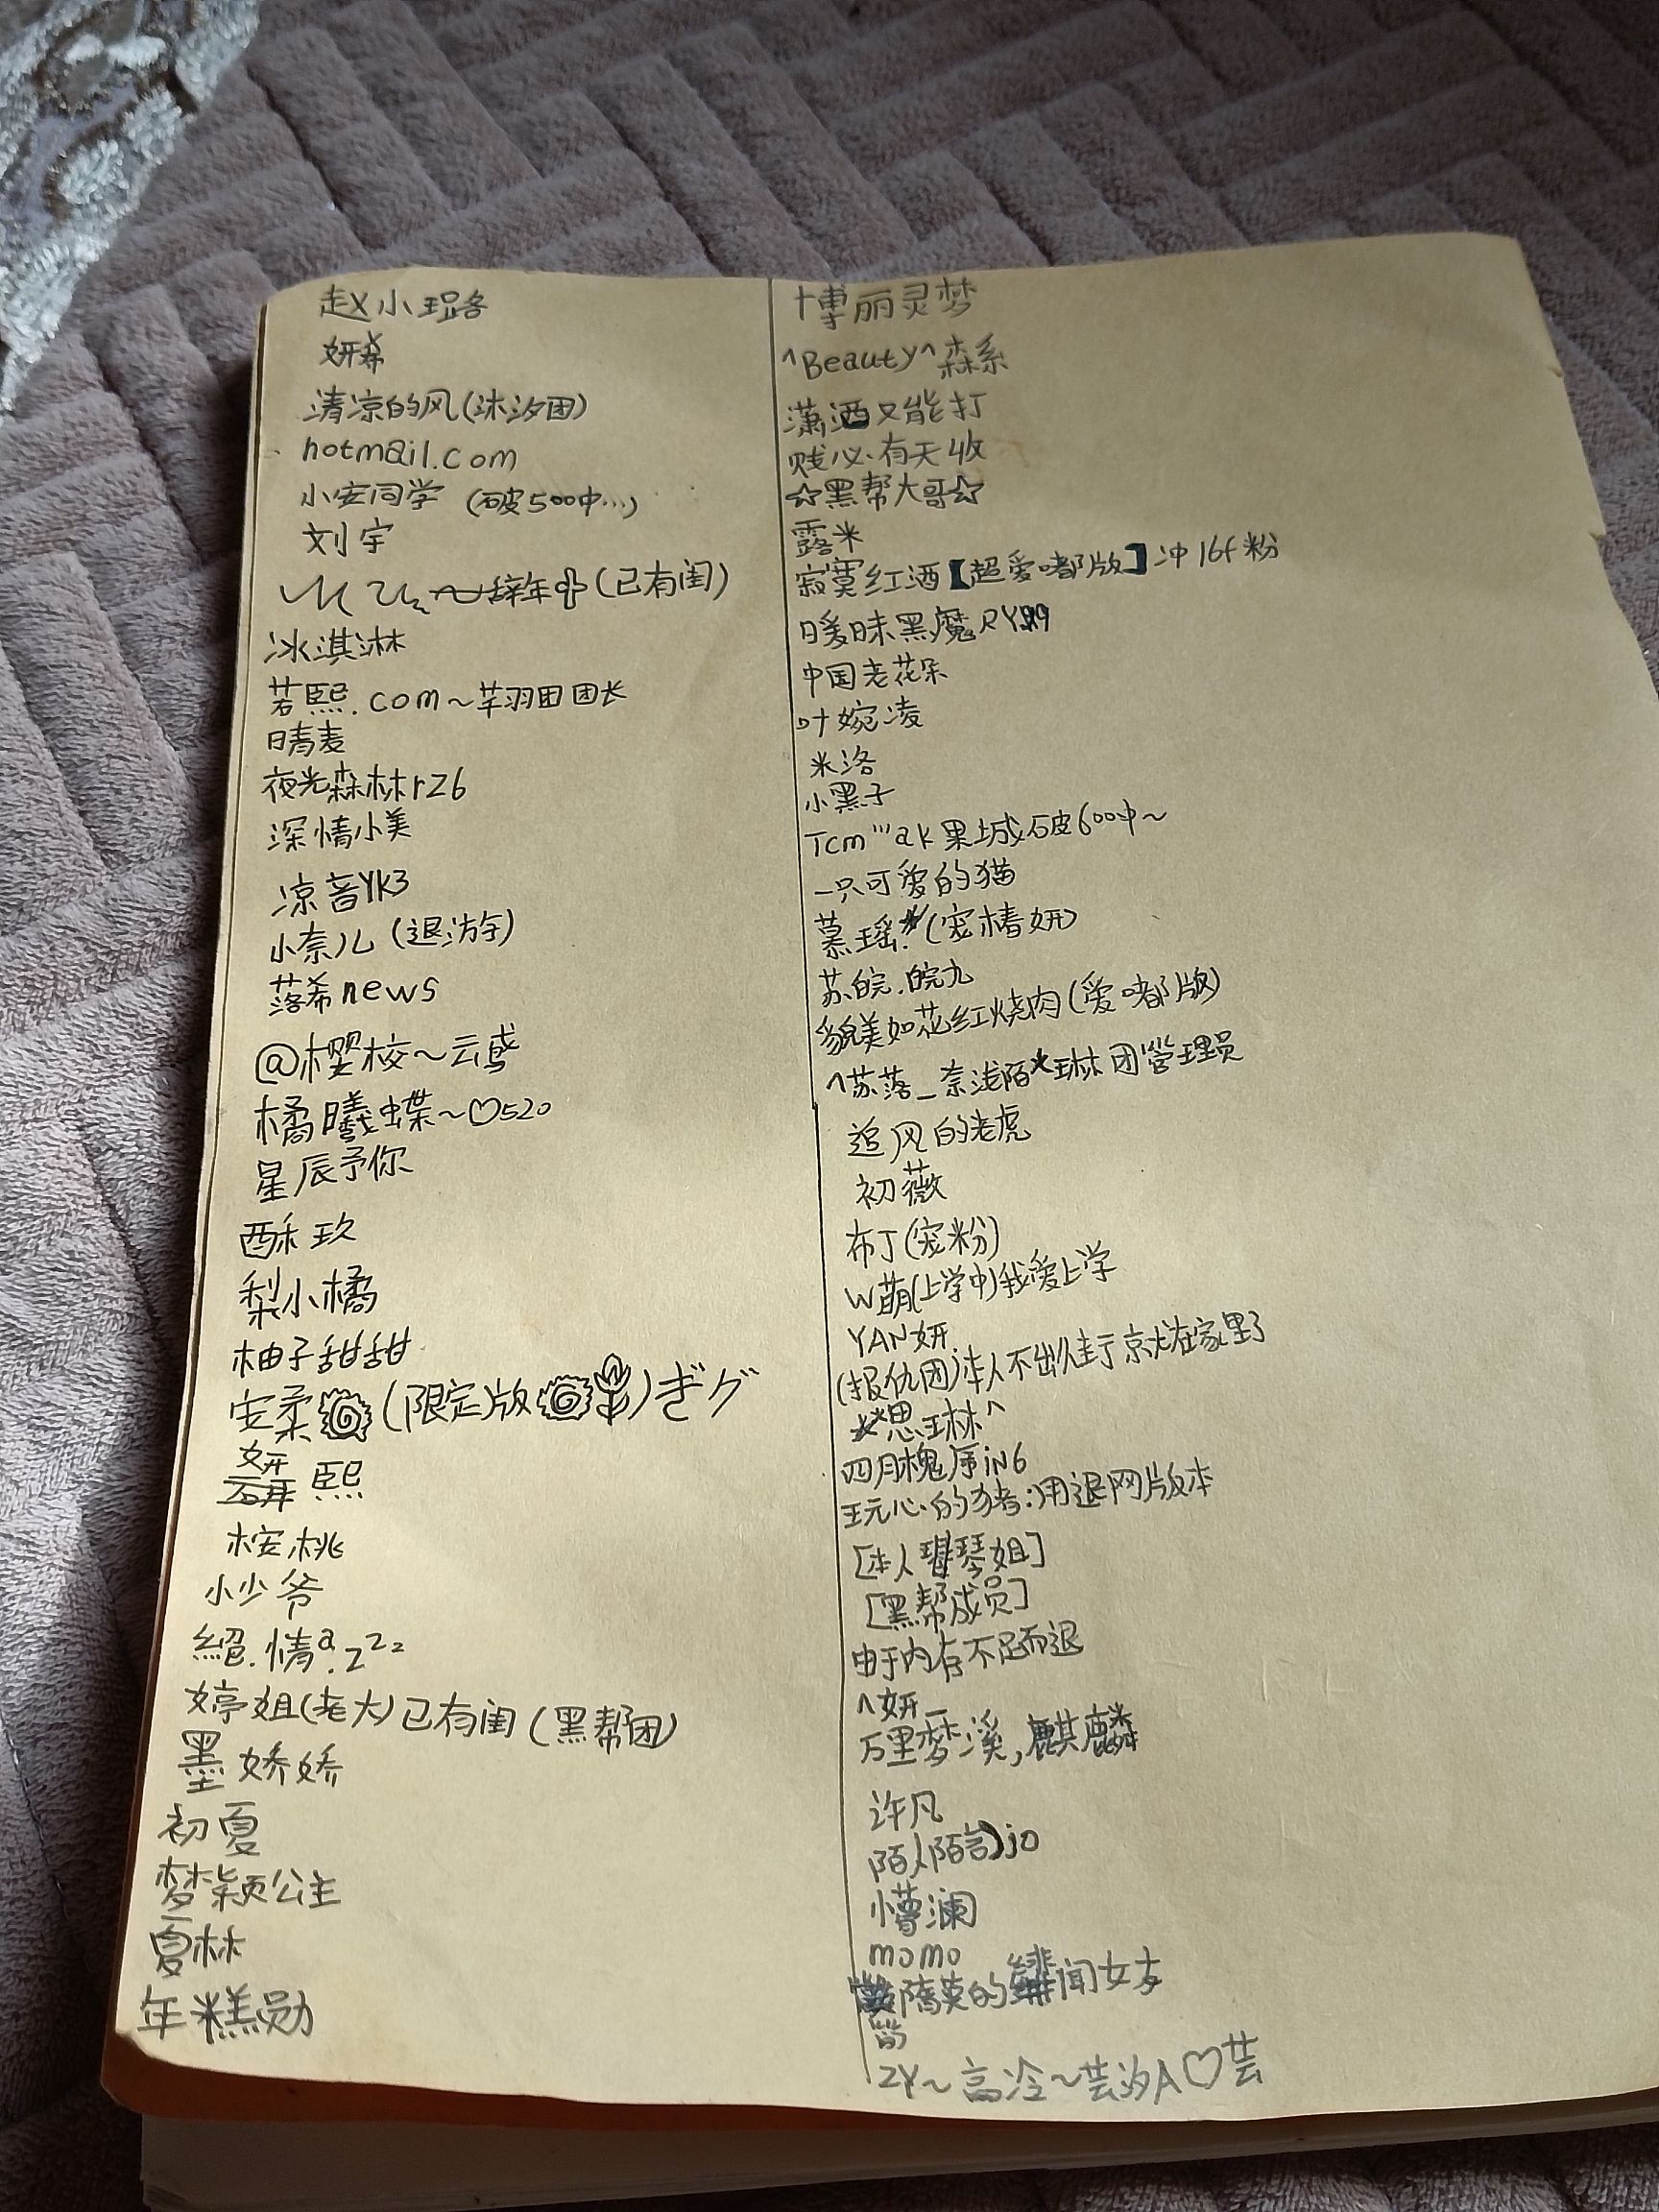 赵小璐
妍希
清凉的风(沐汐团)
hotmail.com
小安同学 (破500中...)
刘宇
辞年 (已有闺)
冰淇淋
若熙.com~芊羽团团长
晴麦
夜光森林rz6
深情小美
凉音YK3
小奈儿 (退游)
落希news
@樱校~云鸢
橘曦蝶~♡520
星辰予你
酥玖
梨小橘
柚子甜甜
安柔 (限定版)ぎグ
妍熙
桉桃
小少爷
絕.情a.zzz
婷姐(老大)已有闺(黑帮团)
墨娇娇
初夏
梦颖公主
夏林
年糕勋
博丽灵梦
^Beauty^森系
潇洒又能打
贱必有天收
☆黑帮大哥☆
露米
寂寞红酒【超爱嘟版】冲16f粉
暧昧黑魔RY
中国老花朵
叶婉凌
米洛
小黑子
Tcm"'ak果城破600中~
一只可爱的猫
慕瑶(宠椿妍)
苏皖.皖九
貌美如花红烧肉(爱嘟版)
^苏落_奈浅陌*琳团管理员
追风的老虎
初薇
布丁(宠粉)
W萌(上学中)我爱上学
YAN妍.
(报仇团)本人不出
**思琳^
四月槐序in6
玩心的猪:)用退网版本
[本人琴姐]
[黑帮成员]
由于内存不足而退
^妍_
万里梦溪,麒麟
许凡
陌(陌言)jo
懵澜
momo
的绯闻女友
ZY~高冷~芸汐A♡芸